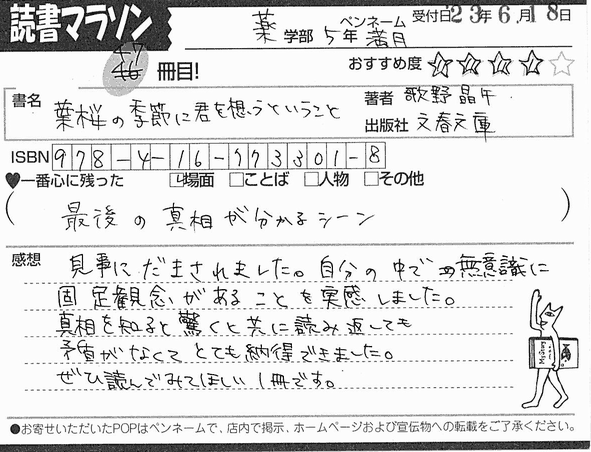 読書マラソン
薬 学部 5年 ペンネーム 満月 受付日 23年6月18日
47 冊目!
おすすめ度 ★★★★☆
書名 葉桜の季節に君を想うということ
著者 歌野晶午
出版社 文春文庫
ISBN 978-4-16-773301-8
♥一番心に残った ☑場面 □ことば □人物 □その他
(最後の真相が分かるシーン)
感想 見事にだまされました。自分の中での無意識に
固定観念があることを実感しました。
真相を知ると驚くと共に読み返しても
矛盾がなくてとても納得できました。
ぜひ読んでみてほしい1冊です。
Mystery
●お寄せいただいたPOPはペンネームで、店内で掲示、ホームページおよび宣伝物への転載をご了承ください。